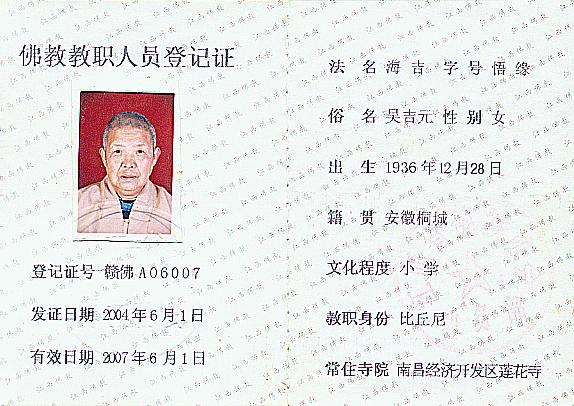 佛教教职人员登记证
登记证号 赣佛A06007
发证日期 2004年6月1日
有效日期 2007年6月1日
法名 海吉 字号 悟缘
俗名 吴吉元 性别 女
出生 1936年12月28日
籍贯 安徽桐城
文化程度 小学
教职身份 比丘尼
常住寺院 南昌经济开发区莲花寺
江西佛教